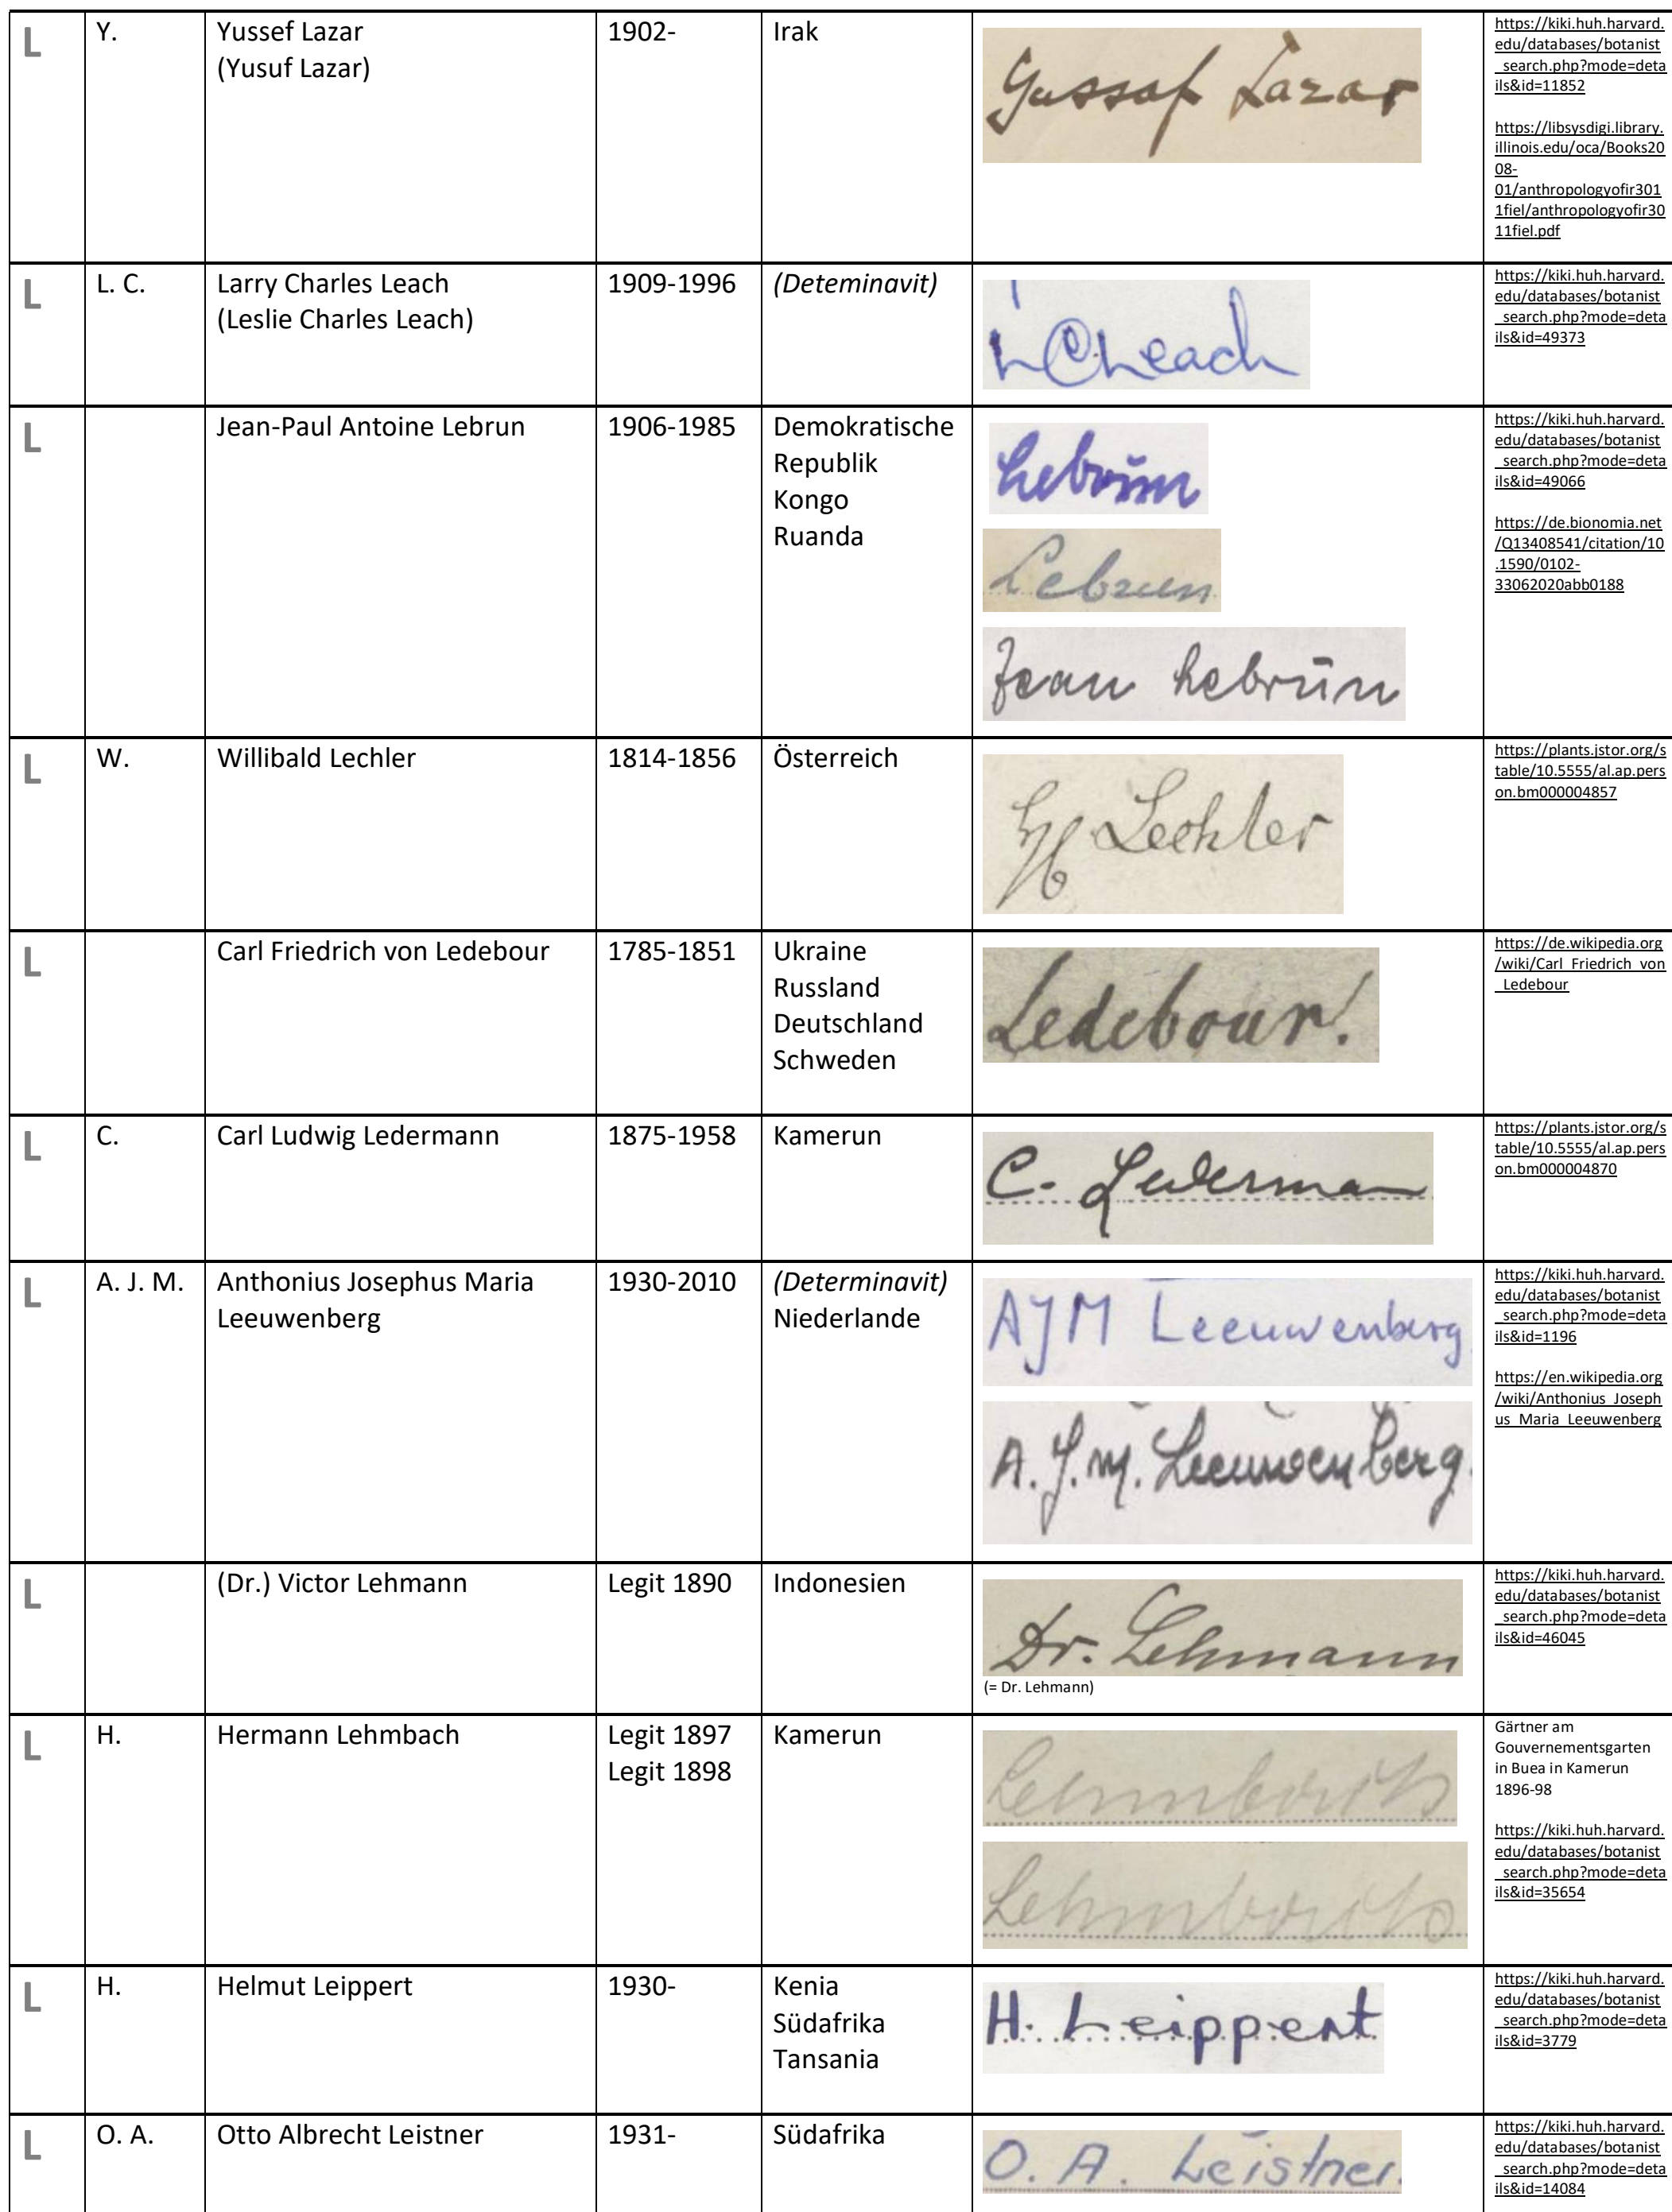 L
Y.
Yussef Lazar
(Yusuf Lazar)
1902-
Irak
Yussaf Lazar
https://kiki.huh.harvard.
edu/databases/botanist
_search.php?mode=deta
ils&id=11852
https://libsysdigi.library.
illinois.edu/oca/Books20
08-
01/anthropologyofir301
1fiel/anthropologyofir30
11fiel.pdf
L
L. C.
Larry Charles Leach
(Leslie Charles Leach)
1909-1996
(Deteminavit)
L C Leach
https://kiki.huh.harvard.
edu/databases/botanist
_search.php?mode=deta
ils&id=49373
L
Jean-Paul Antoine Lebrun
1906-1985
Demokratische
Republik
Kongo
Ruanda
Lebrun
Lebrun
Jean Lebrun
https://kiki.huh.harvard.
edu/databases/botanist
_search.php?mode=deta
ils&id=49066
https://de.bionomia.net
/Q13408541/citation/10
.1590/0102-
33062020abb0188
L
W.
Willibald Lechler
1814-1856
Österreich
W Lechler
https://plants.jstor.org/s
table/10.5555/al.ap.pers
on.bm000004857
L
Carl Friedrich von Ledebour
1785-1851
Ukraine
Russland
Deutschland
Schweden
Ledebour!
https://de.wikipedia.org
/wiki/Carl_Friedrich_von
_Ledebour
L
C.
Carl Ludwig Ledermann
1875-1958
Kamerun
C. Lederman
https://plants.jstor.org/s
table/10.5555/al.ap.pers
on.bm000004870
L
A. J. M.
Anthonius Josephus Maria
Leeuwenberg
1930-2010
(Determinavit)
Niederlande
AJM Leeuwenberg
A. J. M. Leeuwenberg
https://kiki.huh.harvard.
edu/databases/botanist
_search.php?mode=deta
ils&id=1196
https://en.wikipedia.org
/wiki/Anthonius_Joseph
us_Maria_Leeuwenberg
L
(Dr.) Victor Lehmann
Legit 1890
Indonesien
Dr. Lehmann
(= Dr. Lehmann)
https://kiki.huh.harvard.
edu/databases/botanist
_search.php?mode=deta
ils&id=46045
L
H.
Hermann Lehmbach
Legit 1897
Legit 1898
Kamerun
Lehmbach
Lehmbach
Gärtner am
Gouvernementsgarten
in Buea in Kamerun
1896-98
https://kiki.huh.harvard.
edu/databases/botanist
_search.php?mode=deta
ils&id=35654
L
H.
Helmut Leippert
1930-
Kenia
Südafrika
Tansania
H. Leippert
https://kiki.huh.harvard.
edu/databases/botanist
_search.php?mode=deta
ils&id=3779
L
O. A.
Otto Albrecht Leistner
1931-
Südafrika
O. A. Leistner
https://kiki.huh.harvard.
edu/databases/botanist
_search.php?mode=deta
ils&id=14084